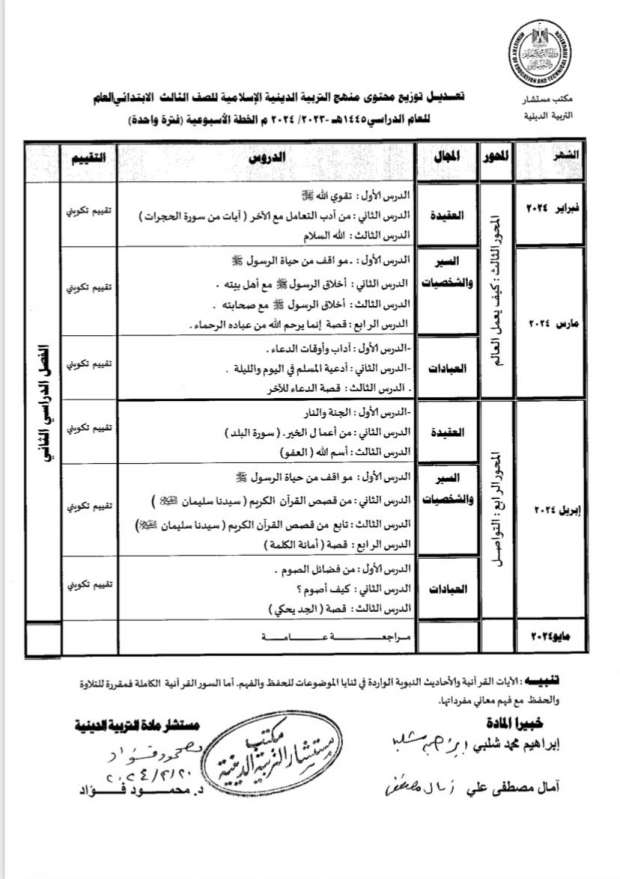 مكتب مستشار
التربية الدينية
تعديل توزيع محتوى منهج التربية الدينية الإسلامية للصف الثالث الابتدائي العام
للعام الدراسي ١٤٤٥هـ - ٢٠٢٣/ ٢٠٢٤ م الخطة الأسبوعية (فترة واحدة)
الشهر المحور المجال الدروس التقييم
الفصل الدراسي الثاني
فبراير ٢٠٢٤
المحور الثالث : كيف يعمل العالم
العقيدة
الدرس الأول : تقوي الله ﷻ
الدرس الثاني : من أدب التعامل مع الآخر ( آيات من سورة الحجرات )
الدرس الثالث: الله السلام
تقييم تكويني
مارس ٢٠٢٤
السير
والشخصيات
الدرس الأول: . مواقف من حياة الرسول ﷺ
الدرس الثاني: أخلاق الرسول ﷺ مع أهل بيته .
الدرس الثالث: أخلاق الرسول ﷺ مع صحابته .
الدرس الرابع: قصة إنما يرحم الله من عباده الرحماء.
تقييم تكويني
العبادات
-الدرس الأول: آداب وأوقات الدعاء .
-الدرس الثاني: أدعية المسلم في اليوم والليلة .
. الدرس الثالث: قصة الدعاء للآخر
تقييم تكويني
إبريل ٢٠٢٤
المحور الرابع : التواصل
العقيدة
-الدرس الأول: الجنة والنار
الدرس الثاني: من أعمال الخير. ( سورة البلد )
الدرس الثالث: أسم الله ( العفو)
تقييم تكويني
السير
والشخصيات
الدرس الأول: مواقف من حياة الرسول ﷺ
الدرس الثاني: من قصص القرآن الكريم ( سيدنا سليمان )
الدرس الثالث: تابع من قصص القرآن الكريم ( سيدنا سليمان )
الدرس الرابع: قصة ( أمانة الكلمة )
تقييم تكويني
العبادات
الدرس الأول: من فضائل الصوم .
الدرس الثاني: كيف أصوم ؟
الدرس الثالث: قصة ( الجد يحكي )
تقييم تكويني
مايو ٢٠٢٤
مراجعة عامة
تنبيه : الآيات القرآنية والأحاديث النبوية الواردة في ثنايا الموضوعات للحفظ والفهم. أما السور القرآنية الكاملة فمقررة للتلاوة
والحفظ مع فهم معاني مفرداتها.
خبيرا المادة
إبراهيم محمد شلبي
آمال مصطفى علي آمال مصطفى
مكتب
مستشار التربية الدينية
مستشار مادة التربية الدينية
محمود فؤاد
٢٠٢٤/٢/٢٠
د. محمود فؤاد